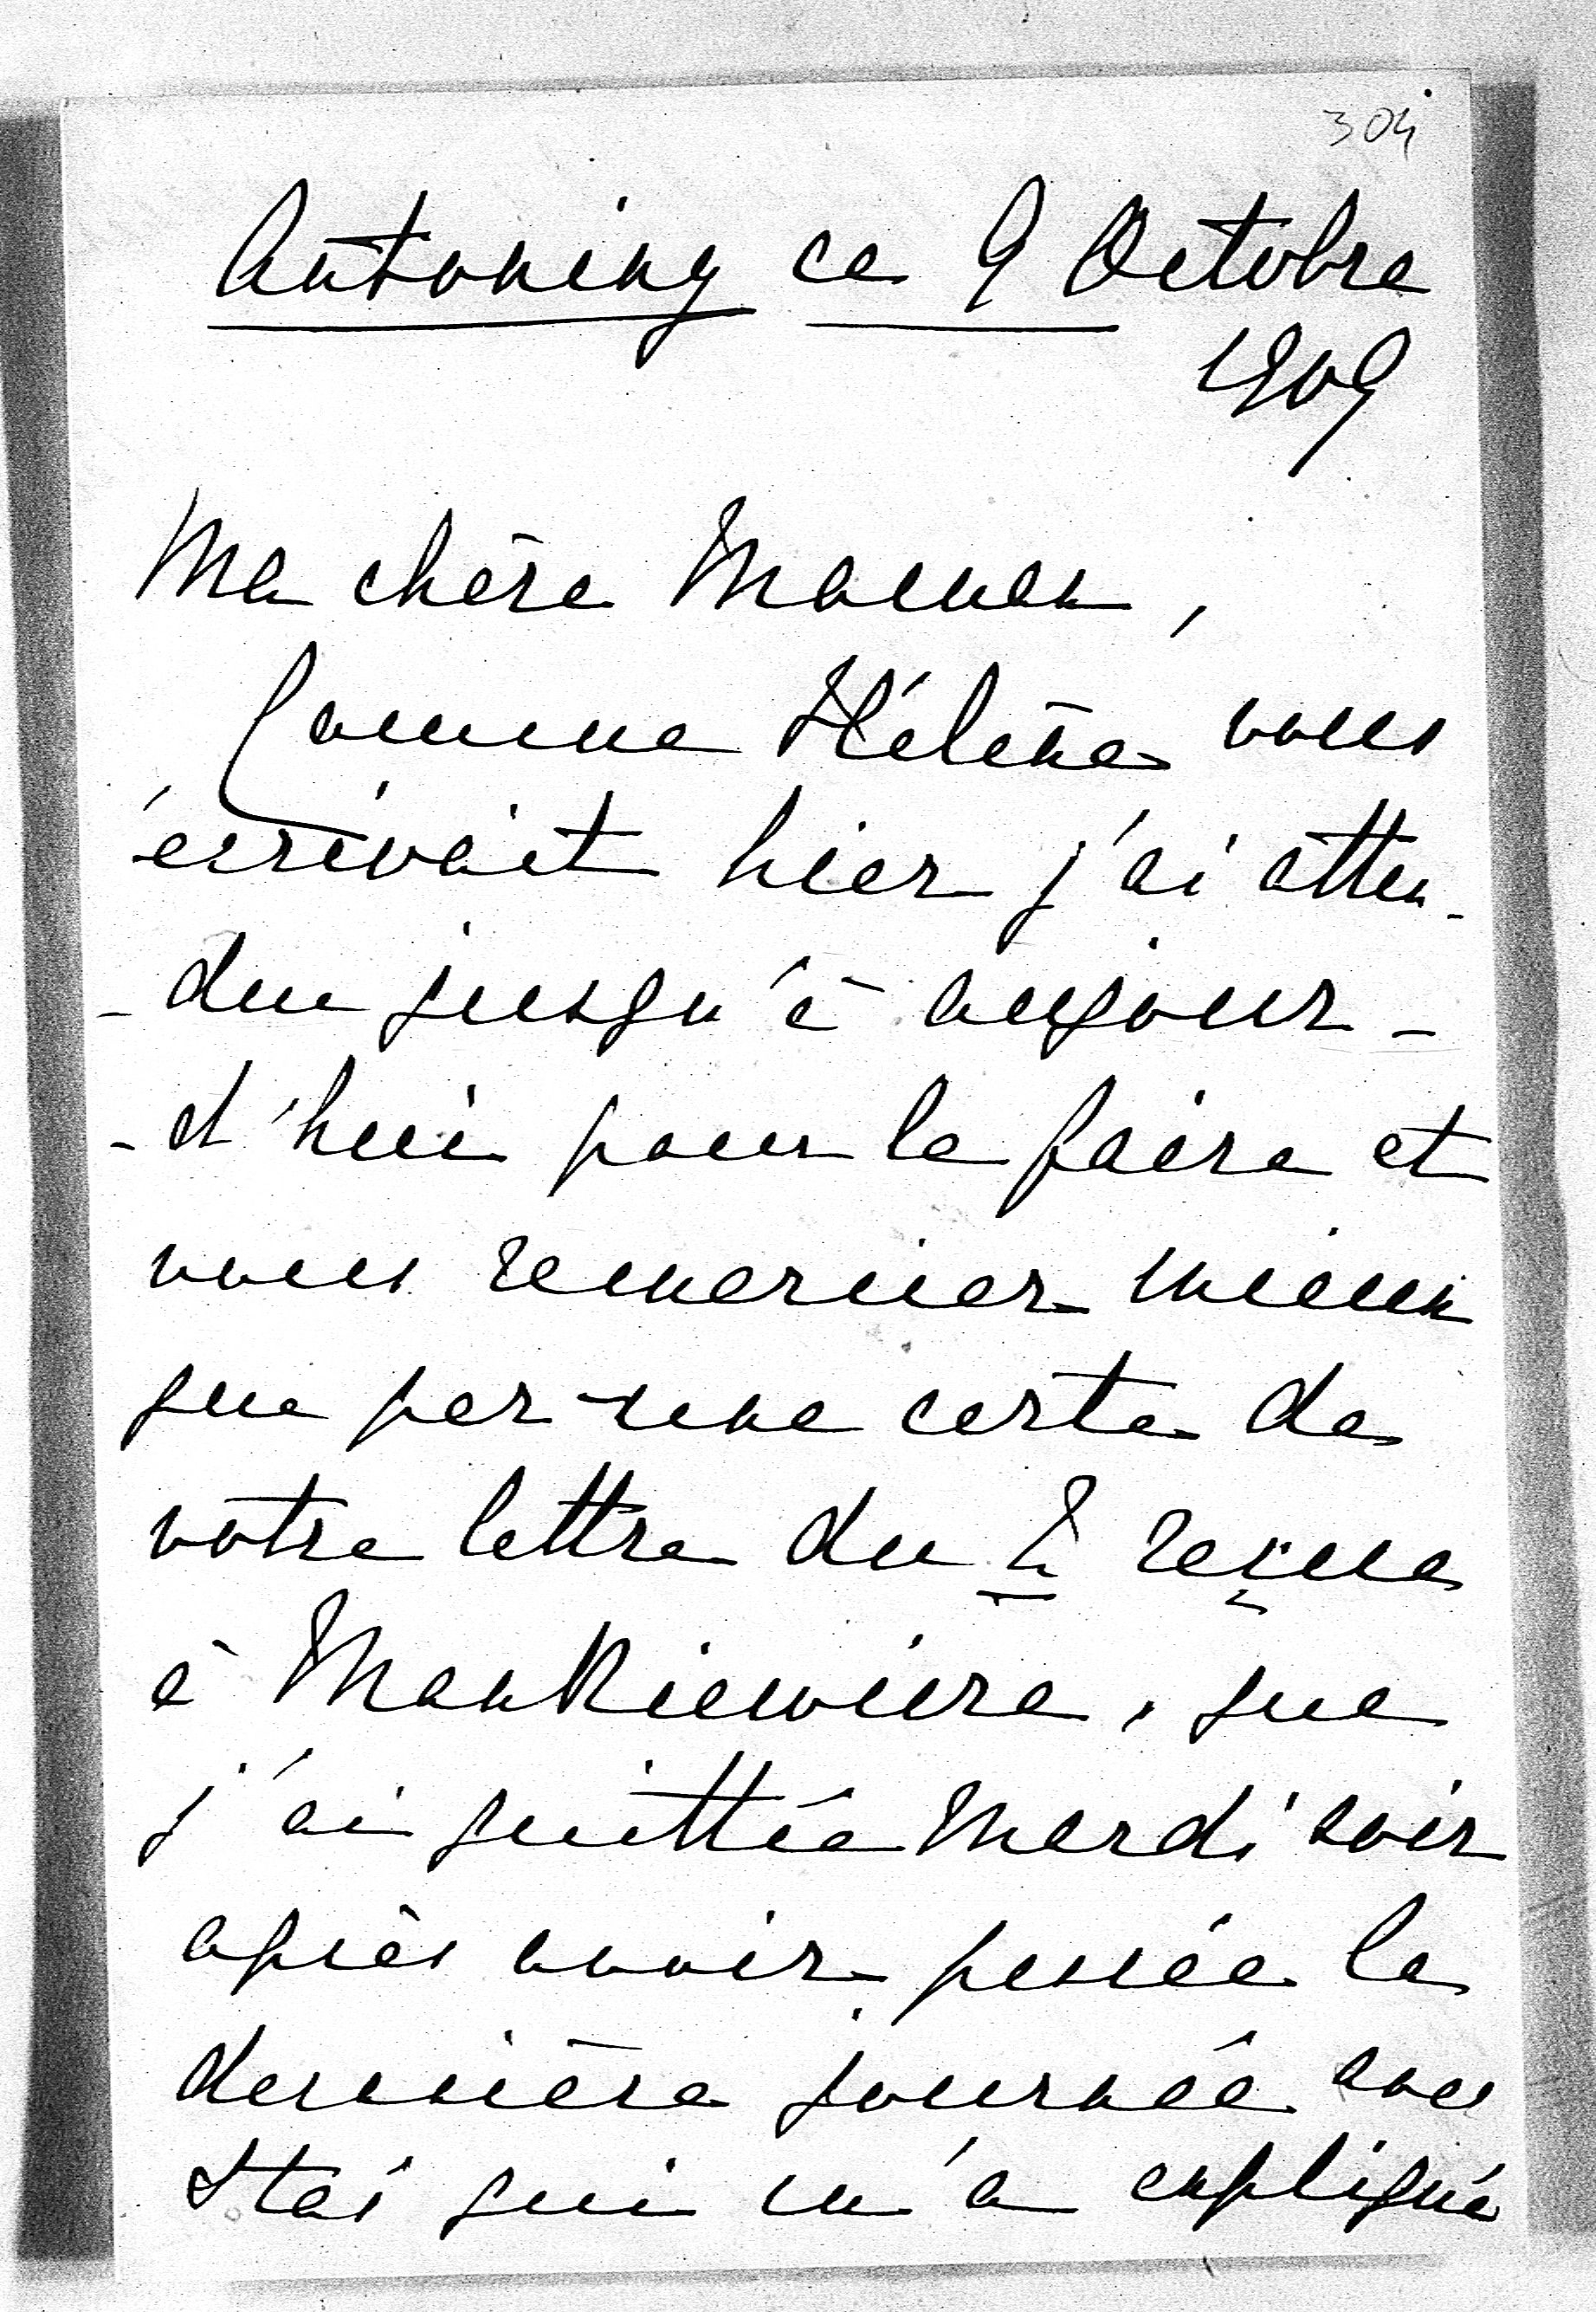 304
Antoniny ce 9 Octobre
1909
Ma chère Maman,
Comme Hélène vous
écrivait hier j'ai atten-
-du jusqu'à aujour-
-d'hui pour le faire et
vous remercier mieux
que par une carte de
votre lettre du 2 reçue
à Mankiewicze, que
j'ai quittée Mardi soir
après avoir passée la
dernière journée avec
Staś qui m'a expliqué